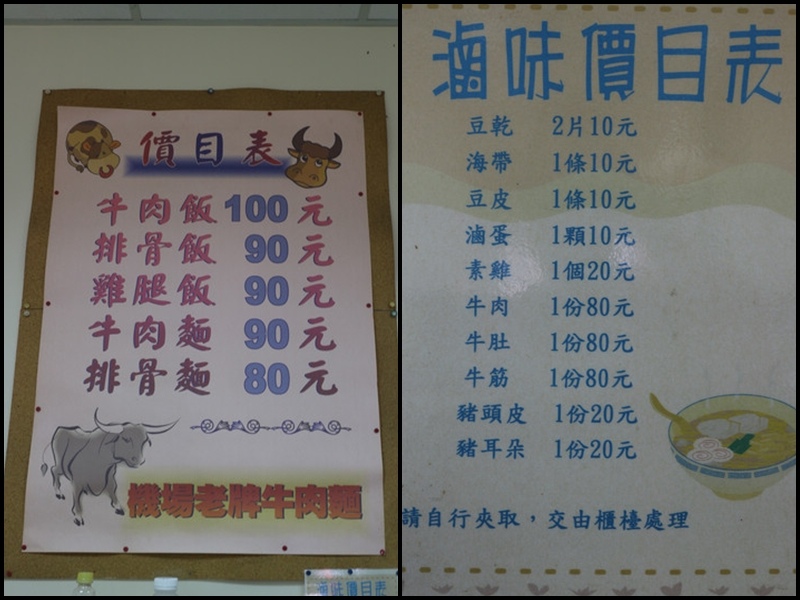 價目表
牛肉飯 100元
排骨飯 90元
雞腿飯 90元
牛肉麵 90元
排骨麵 80元
機場老牌牛肉麵
滷味價目表
滷味價目表
豆乾 2片10元
海帶 1條10元
豆皮 1條10元
滷蛋 1顆10元
素雞 1個20元
牛肉 1份80元
牛肚 1份80元
牛筋 1份80元
豬頭皮 1份20元
豬耳朵 1份20元
請自行夾取,交由櫃檯處理